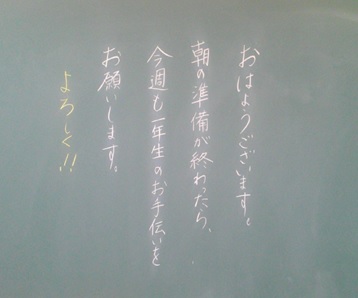 おはようございます。
朝の準備が終わったら、
今週も一年生のお手伝いを
お願いします。
よろしく!!